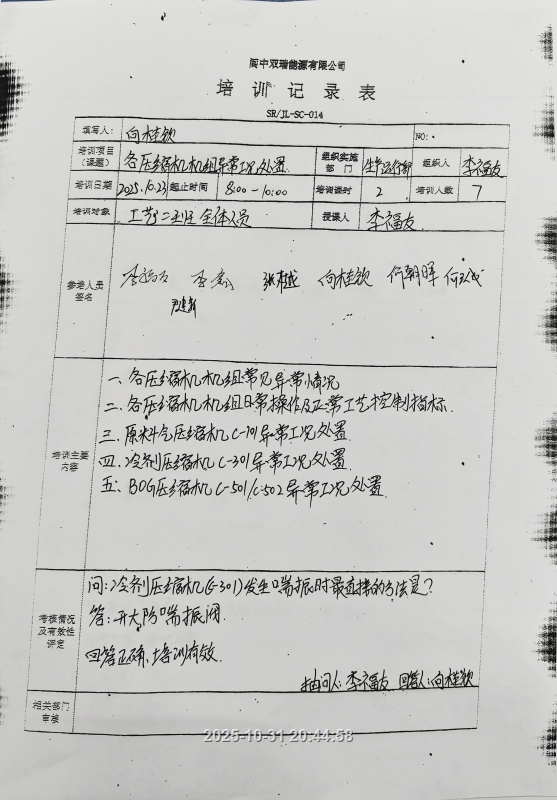 阆中双瑞能源有限公司
培训记录表
SR/JL-SC-014
填写人： 向桂钦 NO：
培训项目（课题） 各压缩机机组异常工况处置 组织实施部门 生产运行部 组织人 李福友
培训日期 2025.10.23 起止时间 8:00-10:00 培训课时 2 培训人数 7
培训对象 工艺二班 全体人员 授课人 李福友
参培人员签名 李福友 向桂钦 何朝晖
培训主要内容
一、各压缩机机组常见异常情况
二、各压缩机机组日常操作及正常工艺控制指标.
三、原料气压缩机C-101异常工况处置
四、冷剂压缩机C-301异常工况处置.
五、BOG压缩机C-501/C-502异常工况处置
考核情况及有效性评定
问：冷剂压缩机(C-301)发生喘振时最直接的方法是？
答：开大防喘振阀.
回答正确，培训有效.
抽问人：李福友 回答人：向桂钦
相关部门审核
2025-10-31 20:44:58